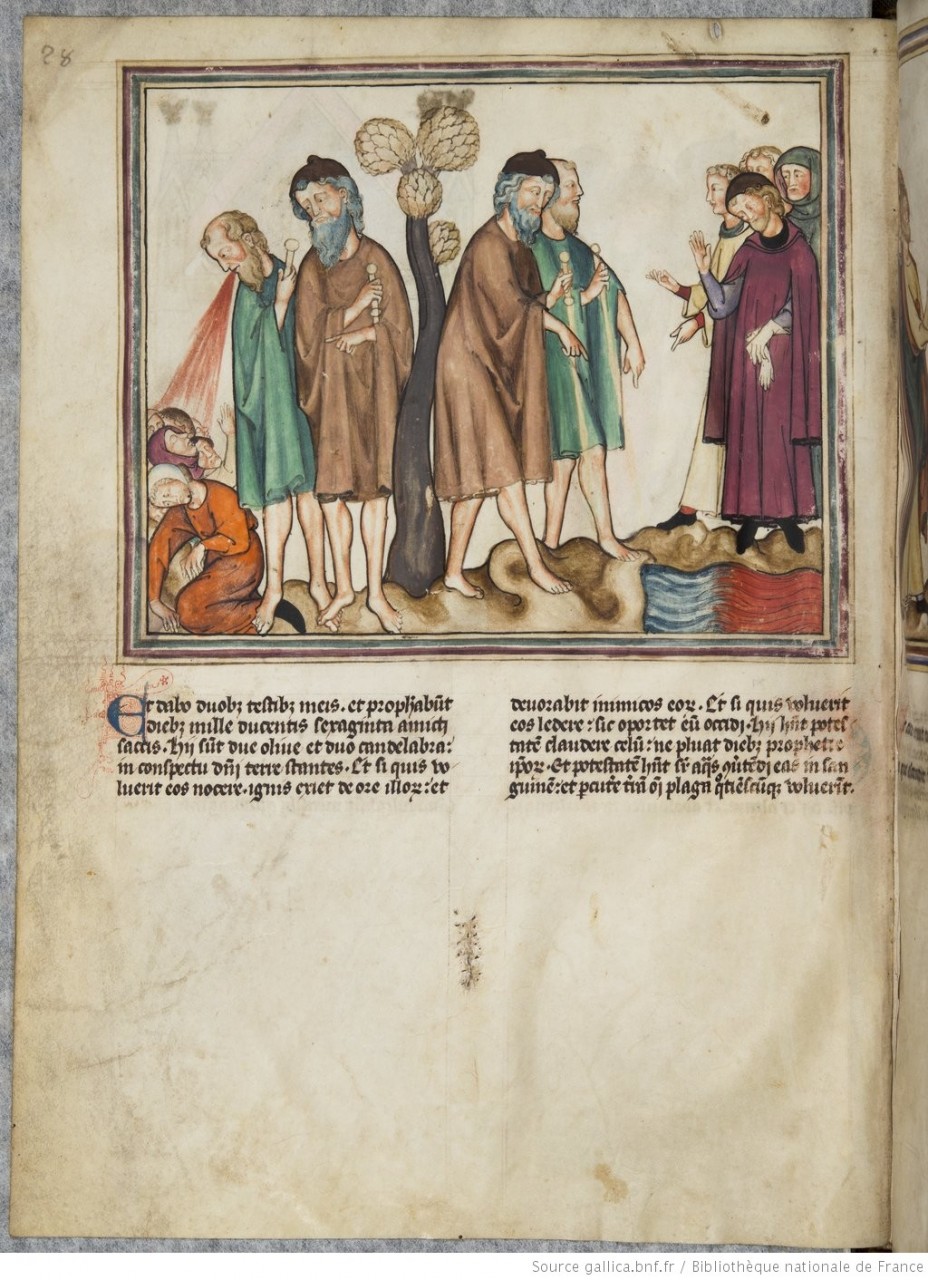 28
Et dabo duobꝫ testibꝫ meis. et proph̃abũt
diebꝫ mille ducentis sexaginta amicti
saccis. Hii sũt due oliue et duo candelabra:
in conspectu dñi terre stantes. Et si quis vo
luerit eos nocere. ignis exiet de ore illoꝝ: et
deuorabit inimicos eoꝝ. Et si quis voluerit
eos ledere: sic oportet eũ occidi. Hii hñt potes
tatẽ claudere celũ: ne pluat diebꝫ prophetie
ip̃oꝝ. Et potestatẽ hñt sr̃ aq̃s ꝯũtẽdi eas in san
guinẽ: et ꝑcutẽ tr̃ã oĩ plaga q̃tiẽscũqꝫ voluerĩt.
Source gallica.bnf.fr / Bibliothèque nationale de France